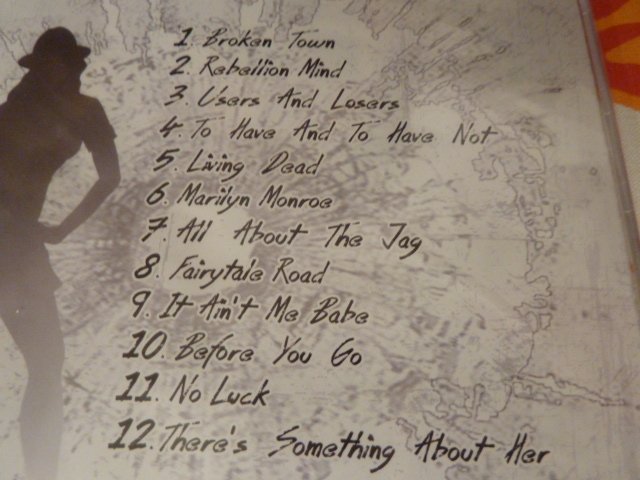 1. Broken Town
2. Rebellion Mind
3. Users And Losers
4. To Have And To Have Not
5. Living Dead
6. Marilyn Monroe
7. All About The Jag
8. Fairytale Road
9. It Ain't Me Babe
10. Before You Go
11. No Luck
12. There's Something About Her